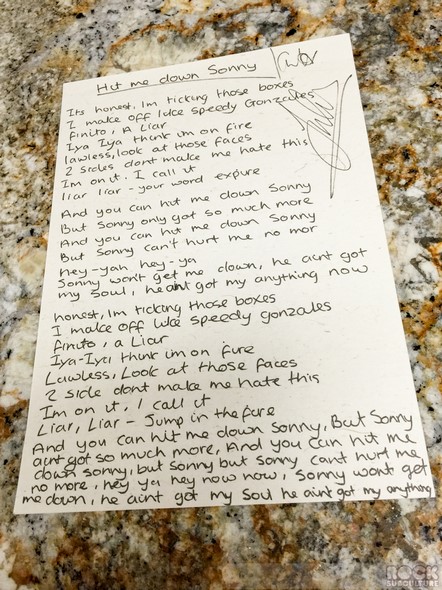 Hit me down Sonny
Its honest, Im ticking those boxes
I make off like speedy Gonzales
finito, A Liar
Iya Iya think im on fire
lawless, look at those faces
2 sides dont make me hate this
Im on it. I call it
liar liar - your word expire
And you can hit me down Sonny
But Sonny only got so much more
And you can hit me down Sonny
But Sonny can't hurt me no mor
Hey-yah hey-ya
Sonny won't get me down, he aint got
my soul, he aint got my anything now
honest, Im ticking those boxes
I make off like speedy gonzales
finito, a Liar
Iya-Iya think im on fire
Lawless, Look at those faces
2 side dont make me hate this
Im on it, I call it
Liar, Liar - Jump in the fire
And you can hit me down Sonny, But Sonny
aint got so much more, And you can hit me
down sonny, but sonny but sonny cant hurt me
no more, hey ya hey now now, Sonny wont get
me down, he aint got my Soul he aint got my anything
ROCK
SUBCULTURE